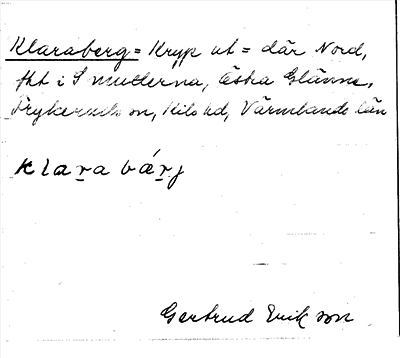 Klaraberg = Kryp ut = där Nord,
fht i S mullerna, Östra Glänne,
Frykeruds sn, Kils hd, Värmlands län
klarabárj
Gertrud Erikson